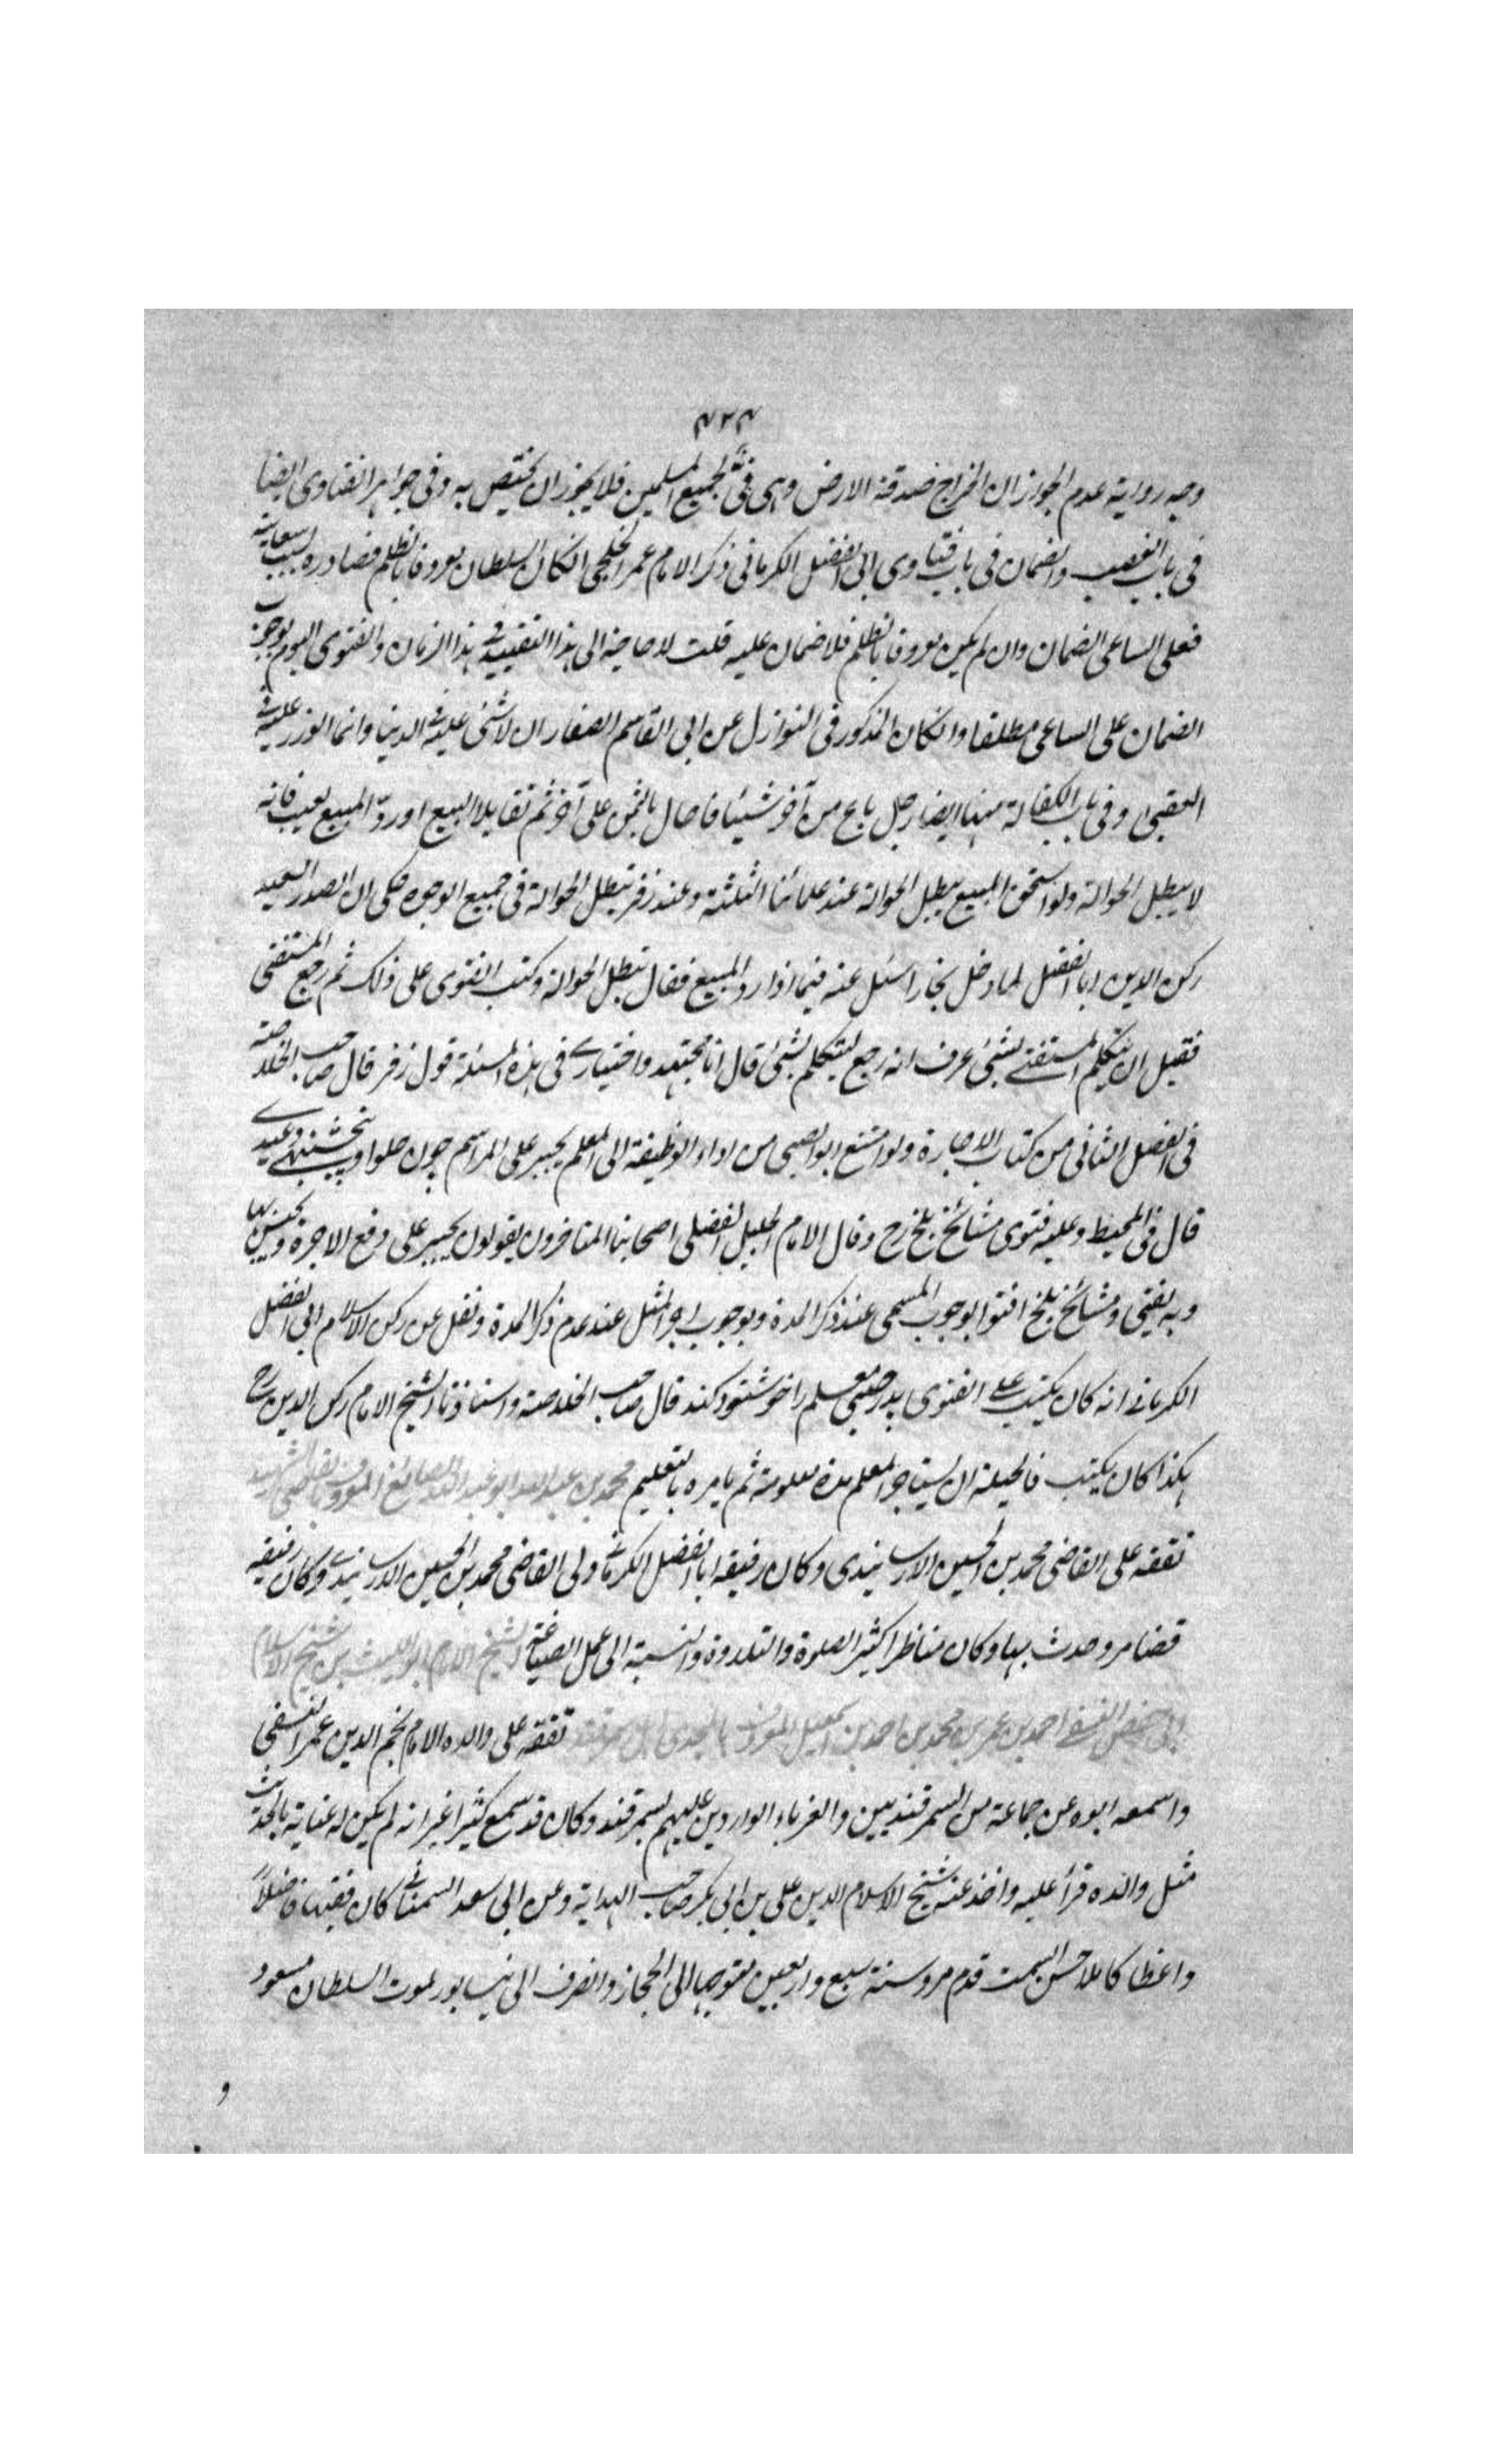 ٤٢٤
وجه رواية عدم الجواز ان الخراج صدقة الارض وهى فئ لجميع المسلمين فلا يجوز ان يختص به وفى جواهر الفتاوى ايضا
فى باب الغصب والضمان فى باب فتاوى ابى الفضل الكرمانى ذكر الامام عمر الحلبى ان كان السلطان معروفا بالظلم فصادره بسبب سعايته
فعلى الساعى الضمان وان لم يكن معروفا بالظلم فلا ضمان عليه قلت لا حاجة الى هذا التقييد فى هذا الزمان والفتوى اليوم بوجوب
الضمان على الساعى مطلقا وان كان المذكور فى النوازل عن ابى القاسم الصفار ان لا شئ عليه فى الدنيا وانما الوزر عليه فى
العقبى وفى باب الكفالة منها ايضا رجل باع من آخر شيئا فاحال بالثمن على آخر ثم تقايلا البيع او ردّ المبيع بعيب فانه
لا يبطل الحوالة ولو استحق المبيع يبطل الحوالة عند علمائنا الثلثة وعند زفر تبطل الحوالة فى جميع الوجوه حكى ان الصدر السعيد
ركن الدين ابا الفضل لما دخل بخارا سئل عنه فيما اذا رد المبيع فقال تبطل الحوالة وكتب الفتوى على ذلك ثم رجع المستفتى
فقيل ان يتكلم المستفتى بشئ عرف انه رجع ليتكلم بشئ قال انا مجتهد واختيارى فى هذه المسئلة قول زفر قال صاحب الخلاصة
فى الفصل الثانى من كتاب الاجارة ولو امتنع ابو الصبى من اداء الوظيفة الى المعلم يجبر على المراسم چون حلوا و پنجشنبهى وعيدى
قال فى المحيط وعليه فتوى مشائخ بلخ رح وقال الامام الجليل الفضلى اصحابنا المتاخرون يقولون يجبر على دفع الاجرة ويحبس بها
وبه يفتى ومشائخ بلخ افتوا بوجوب المسمى عند ذكر المدة وبوجوب اجر المثل عند عدم ذكر المدة ونقل عن ركن الاسلام ابى الفضل
الكرمانى انه كان يكتب على الفتوى پدر صبى معلم را خوشنود كند قال صاحب الخلاصة واستاذنا الشيخ الامام ركن الدين رح
هكذا كان يكتب فالحيلة ان يستاجر المعلم مدة معلومة ثم يامره بالتعليم محمد بن عبد الله ابو عبد الله الصائغ المعروف بالقاضى الشهيد
تفقه على القاضى محمد بن الحسين الارسابندى وكان رفيقه ابا الفضل الكرمانى ولى القاضى محمد بن الحسين الارسابندى وكان رفيقه
قضا مرو حدث بها وكان مناظرا كثير الصلوة والتلاوة والنسبة الى عمل الصياغة الشيخ الامام ابو الليث بن شيخ الاسلام
ابى حفص النسفى احمد بن عمر بن محمد بن احمد بن اسمعيل المعروف بالمجد تفقه على والده الامام نجم الدين عمر النسفى
واسمعه ابوه عن جماعة من السمرقنديين والغرباء الواردين عليهم بسمرقند وكان قد سمع كثيرا غير انه لم يكن له عناية بالحديث
مثل والده قرأ عليه واخذ عنه شيخ الاسلام الدين على بن ابى بكر صاحب الهداية وعن ابى سعد السمعانى كان فقيها فاضلاً
واعظا كاملا حسن السمت قدم مرو سنة سبع واربعين متوجها الى الحجاز وانصرف الى نيسابور لموت السلطان مسعود
و